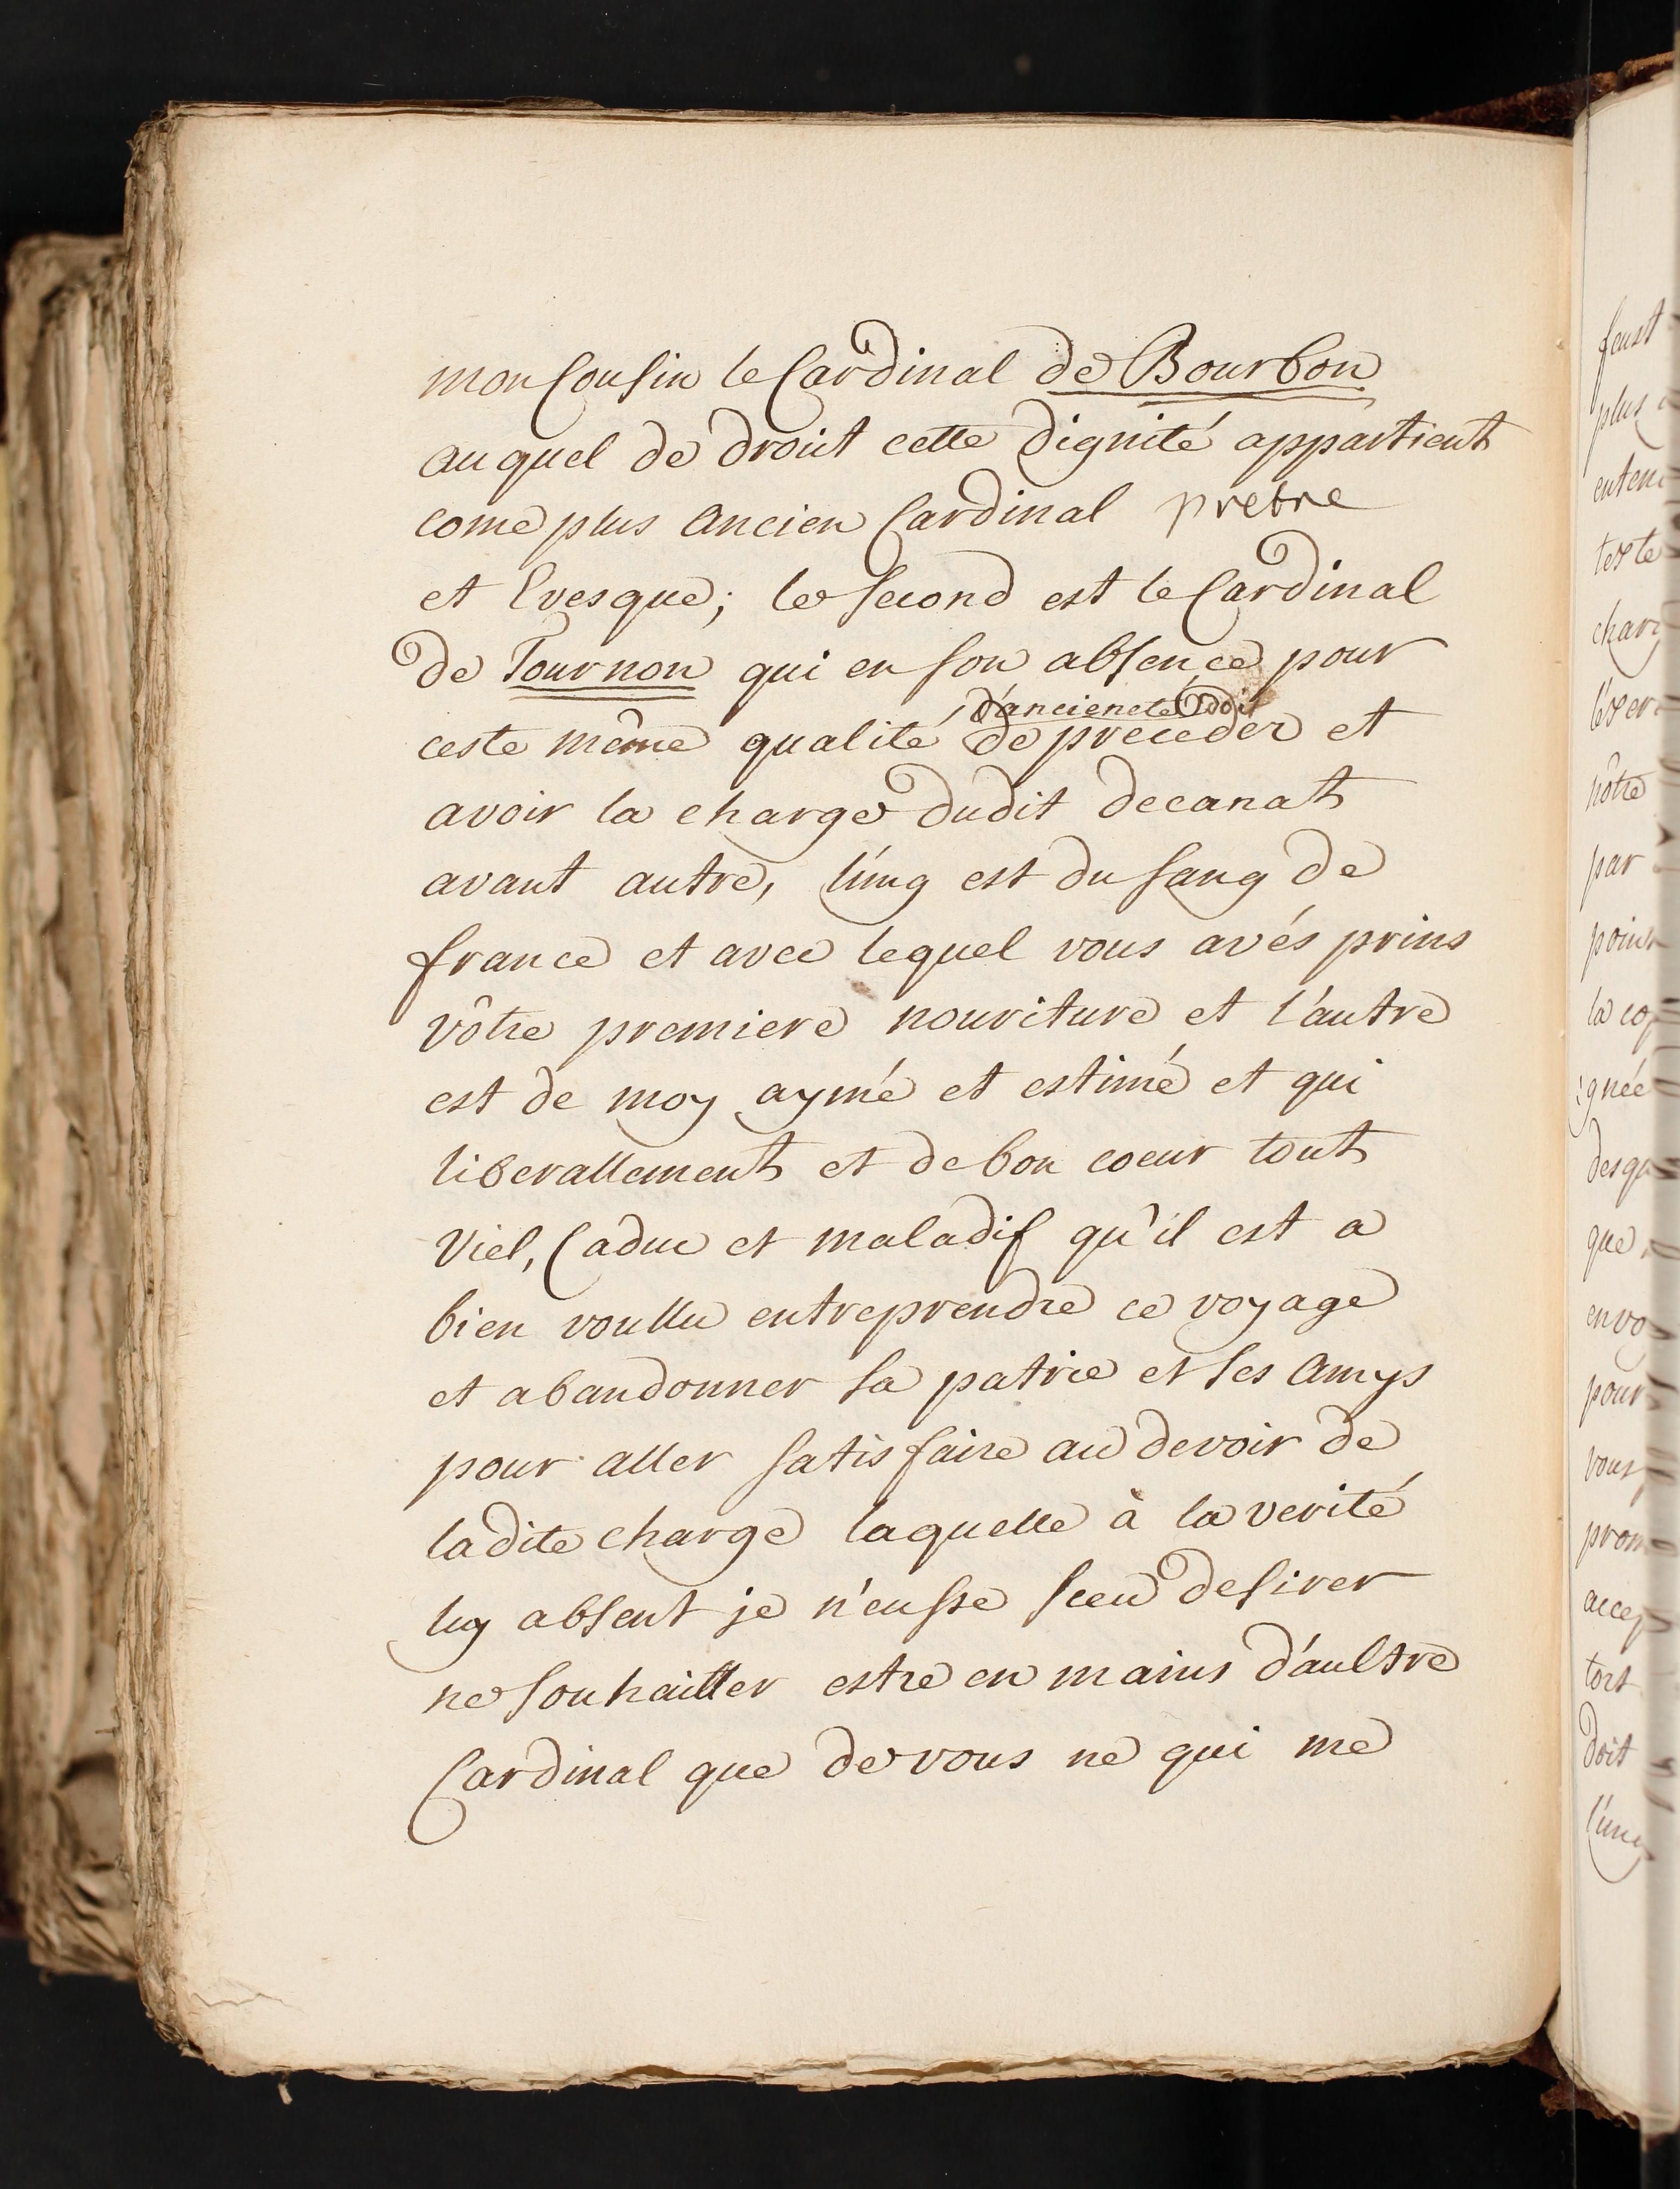 mon Cousin le Cardinal de Bourbon
auquel de droit cette dignité appartient
come plus ancien Cardinal prebre
et Evesque; le second est le Cardinal
de Tournon qui en son absence pour
d'ancieneté doit
ceste même qualité de preceder et
avoir la charge dudit decanat
avant autre, l'ung est du sang de
france et avec lequel vous avés prins
vôtre premiere nouriture et l'autre
est de moy aymé et estimé et qui
liberallement et de bon coeur tout
viel, Caduc et maladif qu'il est a
bien voullu entreprendre ce voyage
et abandonner sa patrie et ses amys
pour aller satisfaire au devoir de
ladite charge laquelle à la verité
luy absent je n'eusse sceu desirer
ne souhaitter estre en mains d'aultre
Cardinal que de vous ne qui me
feust
plus
texte
nôtre
par
point
desqu
que
pour
vous
tort
doit